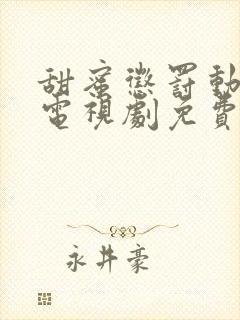 甜蜜懲罰動
電視劇免費
永井豪